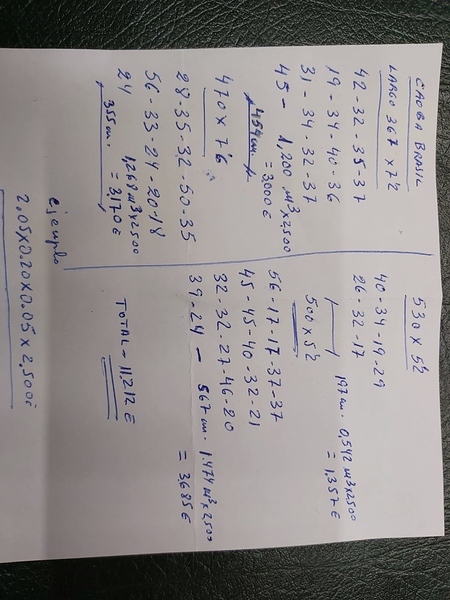 CAOBA BRASIL
LARGO 367 x 7'2
42 - 32 - 35 - 37
19 - 34 - 40 - 36
31 - 34 - 32 - 37
45 - 1,200 m³ x 2500
454 cm. = 3,000 €
470 x 7'6
28 - 35 - 32 - 50 - 35
56 - 33 - 24 - 20 - 18
24 1,268 m³ x 2500
355 cm. = 3,170 €
530 x 5'2
40 - 34 - 19 - 29
26 - 32 - 17
197 cm. 0,542 m³ x 2500
= 1,357 €
500 x 5'2
56 - 17 - 17 - 37 - 37
45 - 45 - 40 - 32 - 21
32 - 32 - 27 - 46 - 20
39 - 24 - 567 cm. 1,474 m³ x 2500
= 3,685 €
TOTAL = 11,212 €
ejemplo
2.05 x 0.20 x 0.05 x 2,500